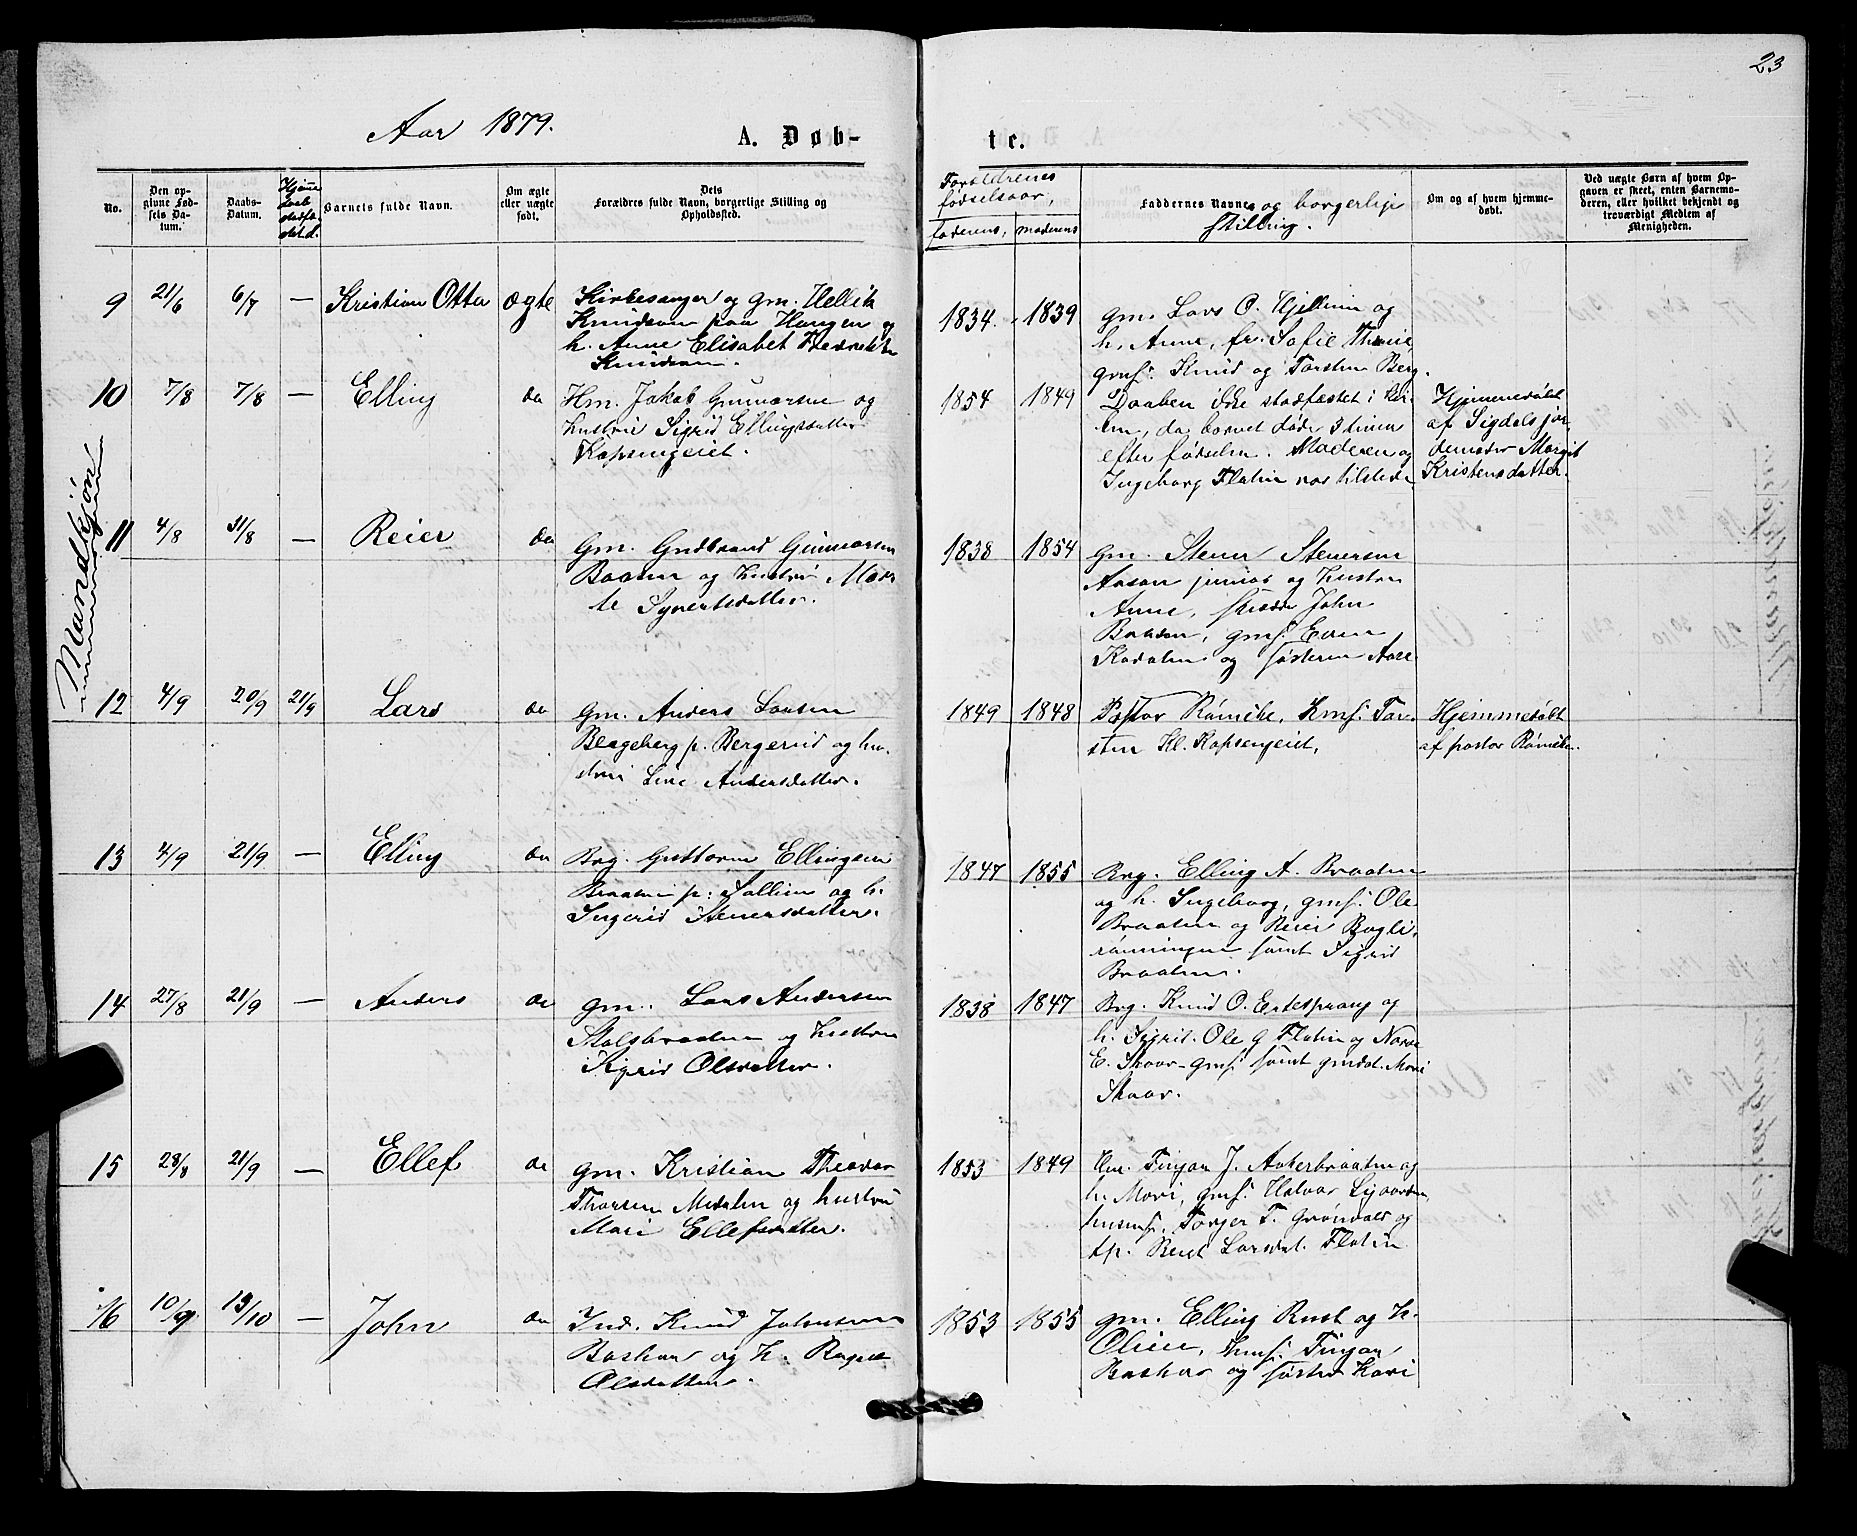 23
Aar 1879.
A. Døb-
te.
No.
Den op-
givne Fød-
sels Da-
tum.
Daabs-
Datum.
Hjemme
daab
stadfæ-
stet d.
Barnets fulde Navn.
Om ægte
eller uægte
født.
Dets
Forældres fulde Navn, borgerlige Stilling og
Opholdssted.
Forældrenes
fødselsaar,
faderens, moderens
Faddernes Navne og borgerlige
stilling.
Om og af hvem hjemme-
døbt.
Ved uægte Børn af hvem Op-
gaven er skeet, enten Barnemo-
deren, eller hvilket bekjendt og
troværdigt Medlem af
Menigheden.
Mandkjøn
9 21/6 6/7 — Kristian Otto ægte
Kirkesanger og gm. Hellik
Knudsen paa Haugen og
h. Anne Elisabet Fredrikke
Knudsen.
1834. 1839
gm. Lars O. Hjellum og
h. Anne, fr. Sofie Thrine,
gmf. Knud og Torsten Berg.
10 7/8 7/8 — Elling do
Hm. Jakob Gunnarsen og
hustru Sigrid Ellingsdatter
Kopsengeiet.
1854 1849
Daaben ikke stadfæstet i kir-
ken, da barnet døde 3 timer
efter fødselen. Moderen og
Ingeborg Flatin var tilstede
Hjemmedøbt
af Sigdals jor-
demoder Margit
Kristensdatter.
11 4/8 31/8 — Reier do
Gm. Gudbrand Gunnarsen
Baasen og hustru Mar-
te Syvertsdatter.
1838 1854
gm. Stener Stenersen
Aasan junior og hustru
Anne, skræder John
Baasen, gmf. Even
Kadalen og søsteren Aase
12 4/9 20/9 21/9 Lars do
gm. Anders Larsen
Blegeberg p. Bergerud og hu-
stru Live Andersdatter.
1849 1848
Pastor Rømcke, Hmf. Tor-
sten Kl. Kopsengeiet,
Hjemmedøbt
af pastor Rømcke.
13 4/9 21/9 — Elling do
Brg. Guttorm Ellingsen
Braaten p. Sollien og h.
Ingerid Stenersdatter.
1847 1855
Brg. Elling A. Braaten
og h. Ingeborg, gmf. Ole
Braaten og Reier Bagli-
rønningen samt Sigrid
Braaten.
14 27/8 21/9 — Anders do
gm. Lars Andersen
Stalsbraaten og hustru
Sigrid Olsdatter.
1838 1847
Brg. Knud O. Ertesprang og
h. Sigrid. Ole G Flatin og Narve
E. Skaar gmf. samt gmdat. Mari
Skaar.
15 28/8 21/9 — Ellef do
gm. Kristian Theodor
Thorsen Medalen og hustru
Mari Ellefsdatter.
1853 1849
Hm. Tingar J. Aakerbraaten og
h. Mari, gmf. Halvor Ligaarden
husmf. Torger T. Grøndal og
tp. Reiet Larsdat. Flatin
16 10/9 19/10 — John do
Ind. Knud Johnsen
Baskar og h. Ragne
Olsdatter.
1853 1855
gm. Elling Rust og h.
Oline, hmf. Tingar
Baskar og søster Kari